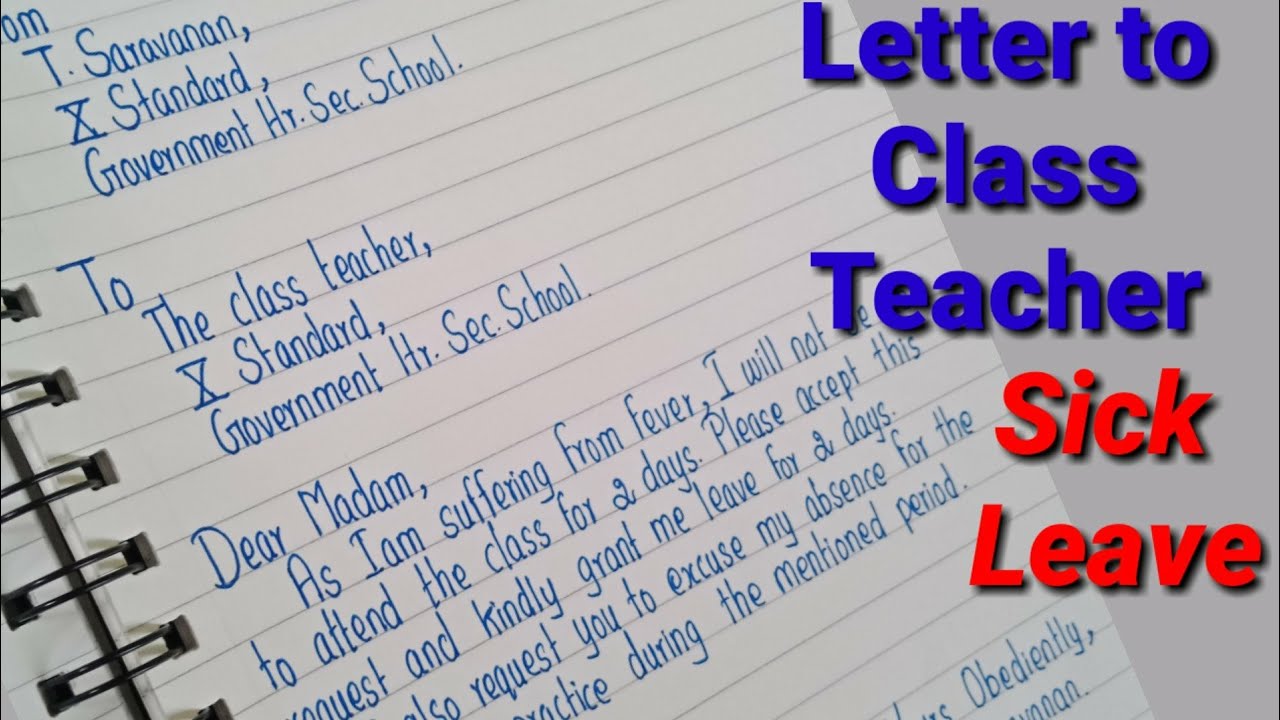 om
T. Saravanan,
X Standard,
Government Hr. Sec. School.
To
The class teacher,
X Standard,
Government Hr. Sec. School.
Dear Madam,
As I am suffering from fever, I will not
to attend the class for 2 days. Please accept this
request and kindly grant me leave for 2 days.
also request you to excuse my absence for the
practice during the mentioned period.
Obediently,
Letter to
Class
Teacher
Sick
Leave